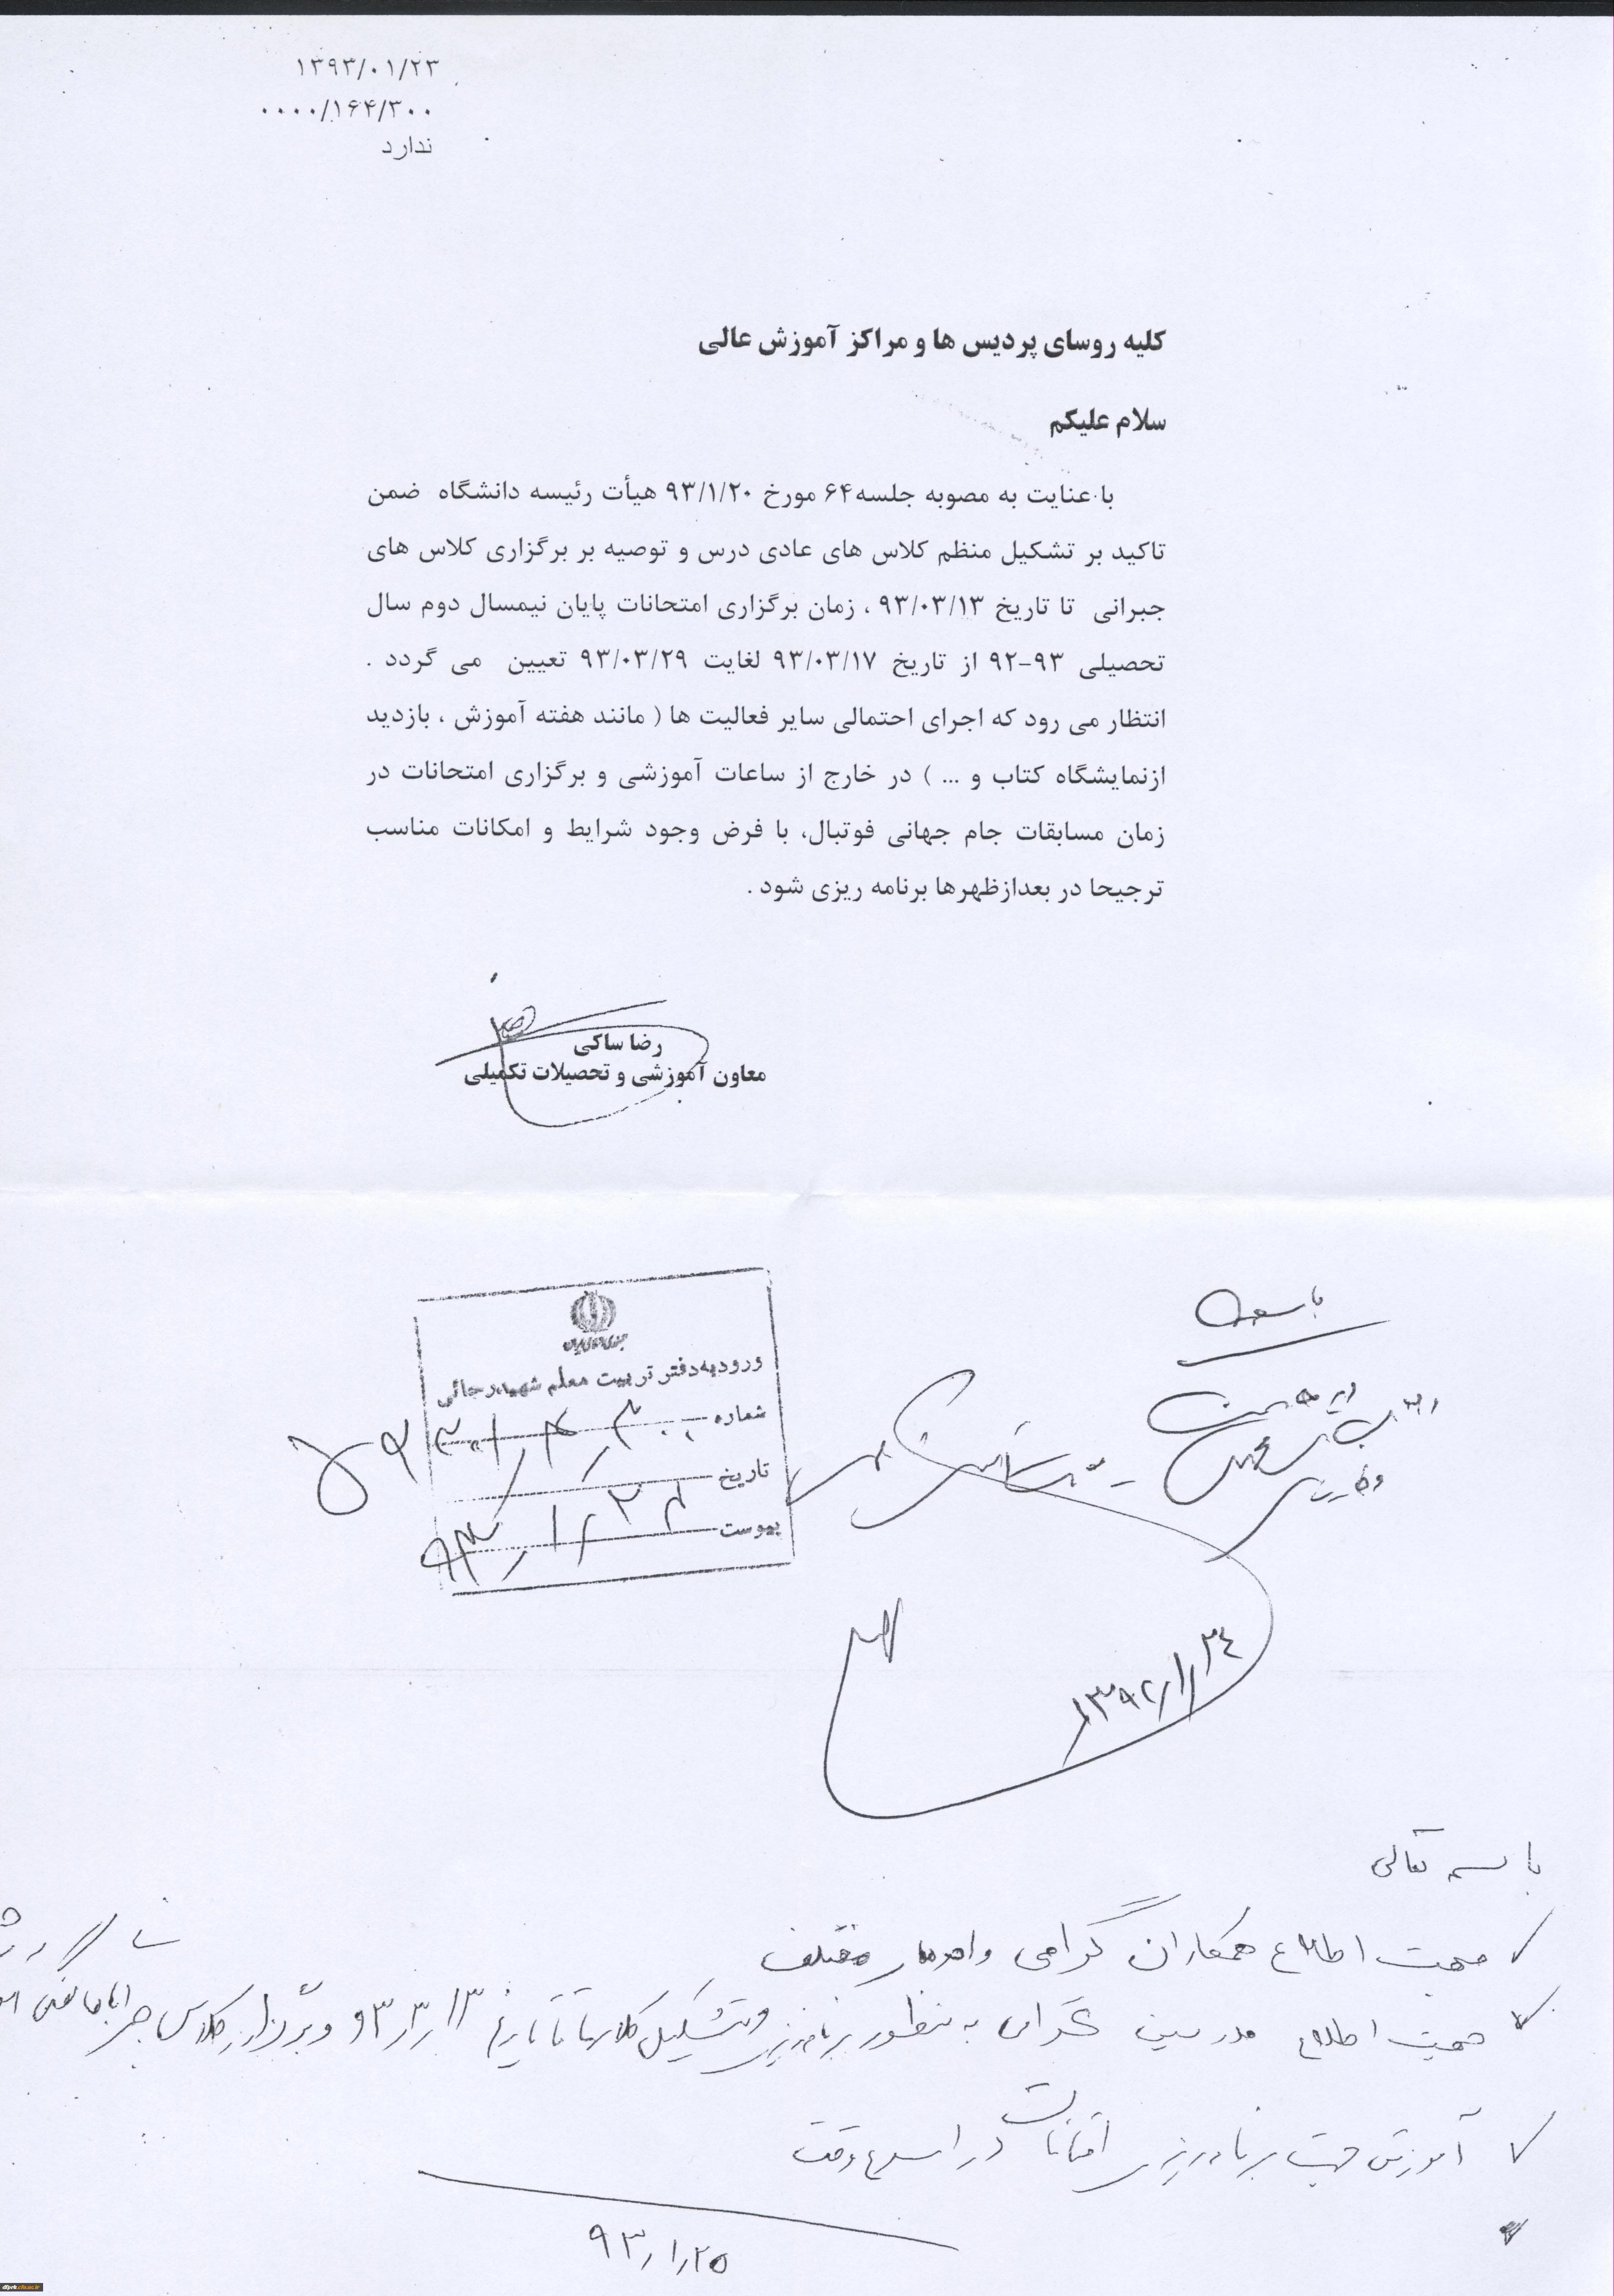 ۱۳۹۳/۰۱/۲۳
۰۰۰۰/۱۶۴/۳۰۰
ندارد
کلیه روسای پردیس ها و مراکز آموزش عالی
سلام علیکم
با عنایت به مصوبه جلسه۶۴ مورخ ۹۳/۱/۲۰ هیأت رئیسه دانشگاه ضمن
تاکید بر تشکیل منظم کلاس های عادی درس و توصیه بر برگزاری کلاس های
جبرانی تا تاریخ ۹۳/۰۳/۱۳ ، زمان برگزاری امتحانات پایان نیمسال دوم سال
تحصیلی ۹۳-۹۲ از تاریخ ۹۳/۰۳/۱۷ لغایت ۹۳/۰۳/۲۹ تعیین می گردد .
انتظار می رود که اجرای احتمالی سایر فعالیت ها ( مانند هفته آموزش ، بازدید
ازنمایشگاه کتاب و ... ) در خارج از ساعات آموزشی و برگزاری امتحانات در
زمان مسابقات جام جهانی فوتبال، با فرض وجود شرایط و امکانات مناسب
ترجیحا در بعدازظهرها برنامه ریزی شود .
رضا ساکی
معاون آموزشی و تحصیلات تکمیلی
جمهوری اسلامی ایران
ورود به دفتر تربیت معلم شهید رجائی
شماره
تاریخ
پیوست
۹۳/۱/۲۴
باسمه تعالی
جهت اطلاع همکاران گرامی و واحدهای مختلف
جهت اطلاع مدرسین گرامی به منظور برنامه ریزی و تشکیل کلاسها تا تاریخ ۹۳/۳/۱۳ و برگزاری کلاس جبرانی
آموزش جهت برنامه ریزی امتحانات در اسرع وقت
۹۳/۱/۲۵